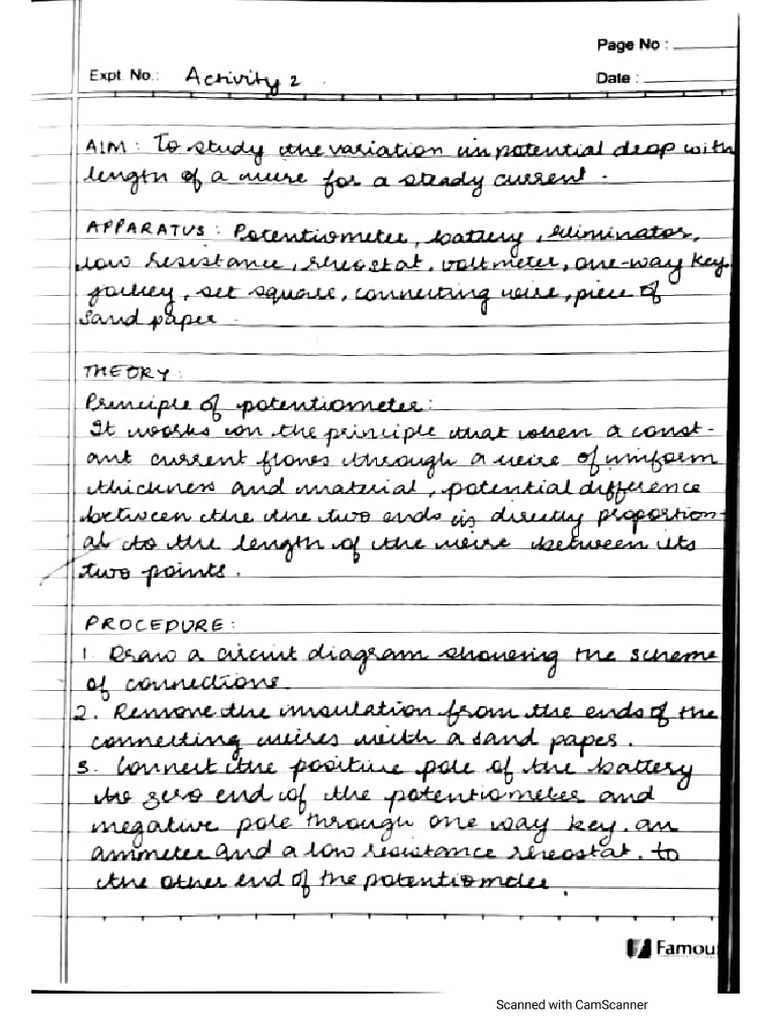 Page No :
Expt. No.: Activity 2
Date :
AIM : To study the variation in potential drop with
length of a wire for a steady current .
APPARATUS : Potentiometer, battery, eliminator,
low resistance, rheostat, voltmeter, one-way key
jockey, set square, connecting wire, piece of
sand paper
THEORY :
Principle of potentiometer:
It works on the principle that when a const-
ant current flows through a wire of uniform
thickness and material, potential difference
between the the two ends is directly proportion-
al to the length of the wire between its
two points.
PROCEDURE :
1. Draw a circuit diagram showing the scheme
of connections.
2. Remove the insulation from the ends of the
connecting wires with a sand paper.
3. Connect the positive pole of the battery
to zero end of the potentiometer and
negative pole through one way key, an
ammeter and a low resistance rheostat, to
the other end of the potentiometer.
Famou
Scanned with CamScanner